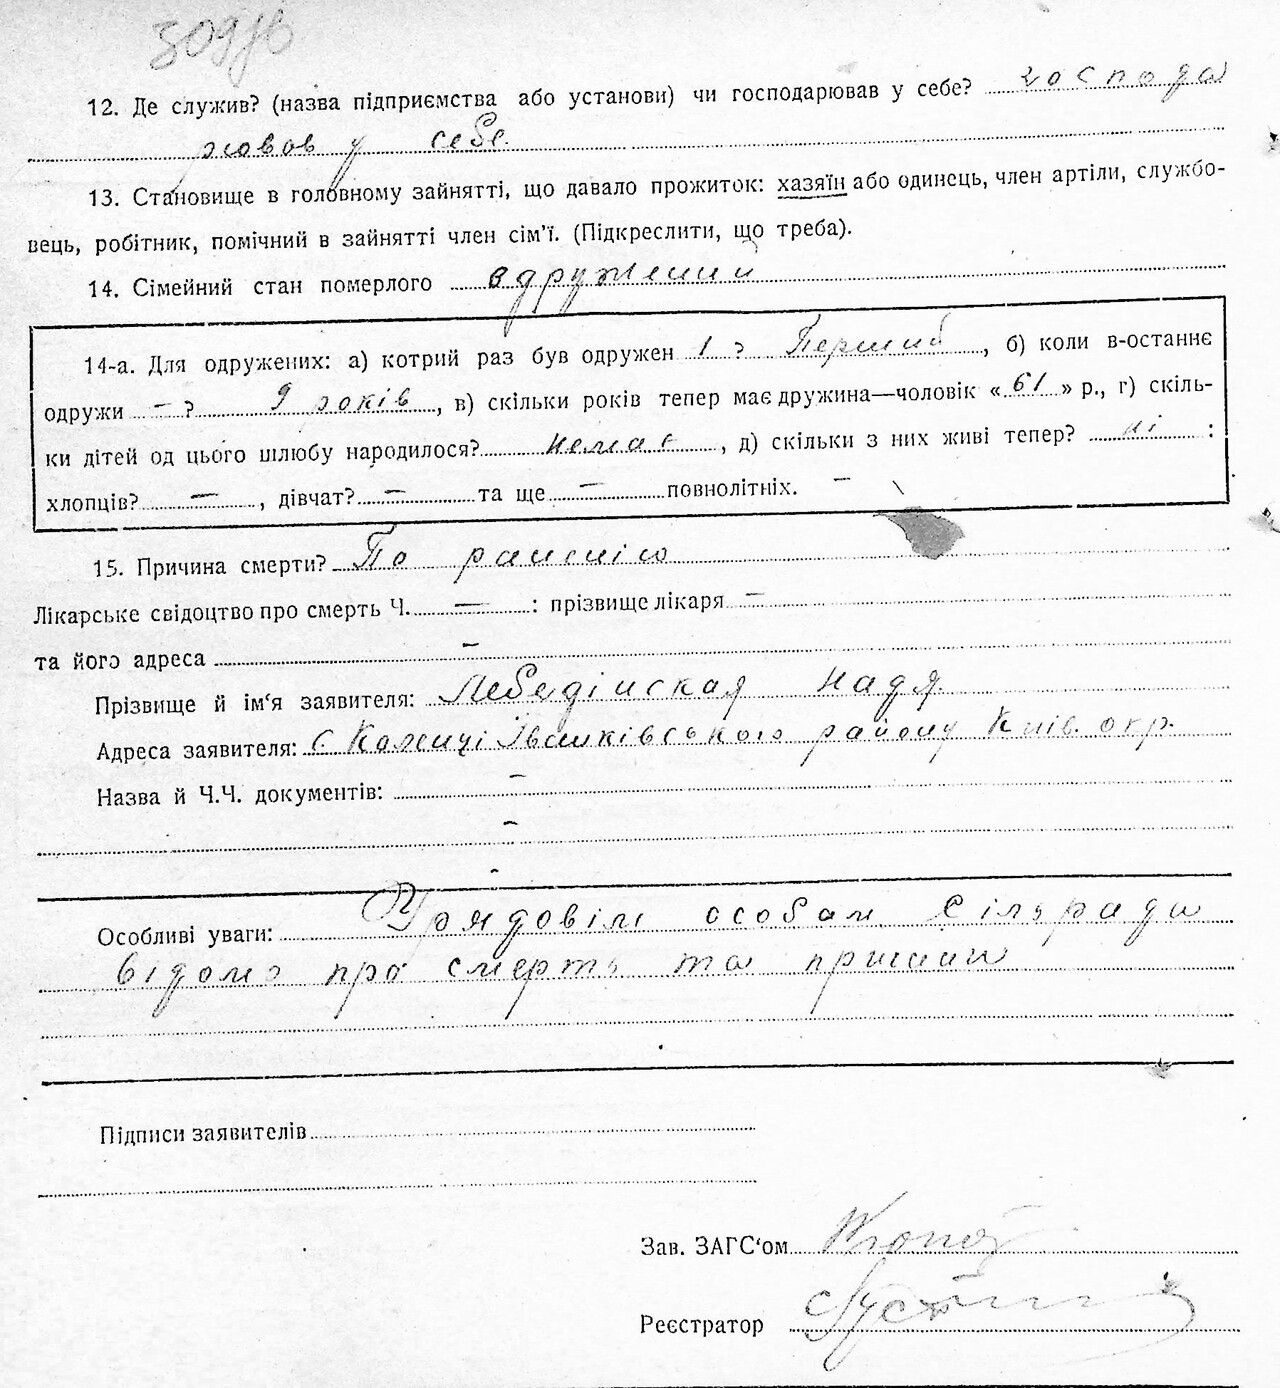 12. Де служив? (назва підприємства або установи) чи господарював у себе? господа
рював у себе.
13. Становище в головному зайнятті, що давало прожиток: хазяїн або одинець, член артіли, службо-
вець, робітник, помічний в зайнятті член сім'ї. (Підкреслити, що треба).
14. Сімейний стан померлого одружений
14-а. Для одружених: а) котрий раз був одружен 1 ? Перший, б) коли в-останнє
одружи — ? 9 років, в) скільки років тепер має дружина—чоловік «61» р., г) скіль-
ки дітей од цього шлюбу народилося? немає, д) скільки з них живі тепер? ні :
хлопців? —, дівчат? — та ще — повнолітніх. —
15. Причина смерти? По
Лікарське свідоцтво про смерть Ч. — : прізвище лікаря —
та його адреса —
Прізвище й ім'я заявителя: Лебедінская Надя.
Адреса заявителя: с. Іванківського району Київ. окр.
Назва й Ч.Ч. документів: —
—
Особливі уваги: Урядовім особам Сільрада
відомо про смерть та
Підписи заявителів
Зав. ЗАГС'ом
Реєстратор